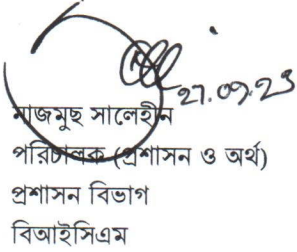 ২৭.০৭.২৩
নাজমুছ সালেহীন
পরিচালক (প্রশাসন ও অর্থ)
প্রশাসন বিভাগ
বিআইসিএম